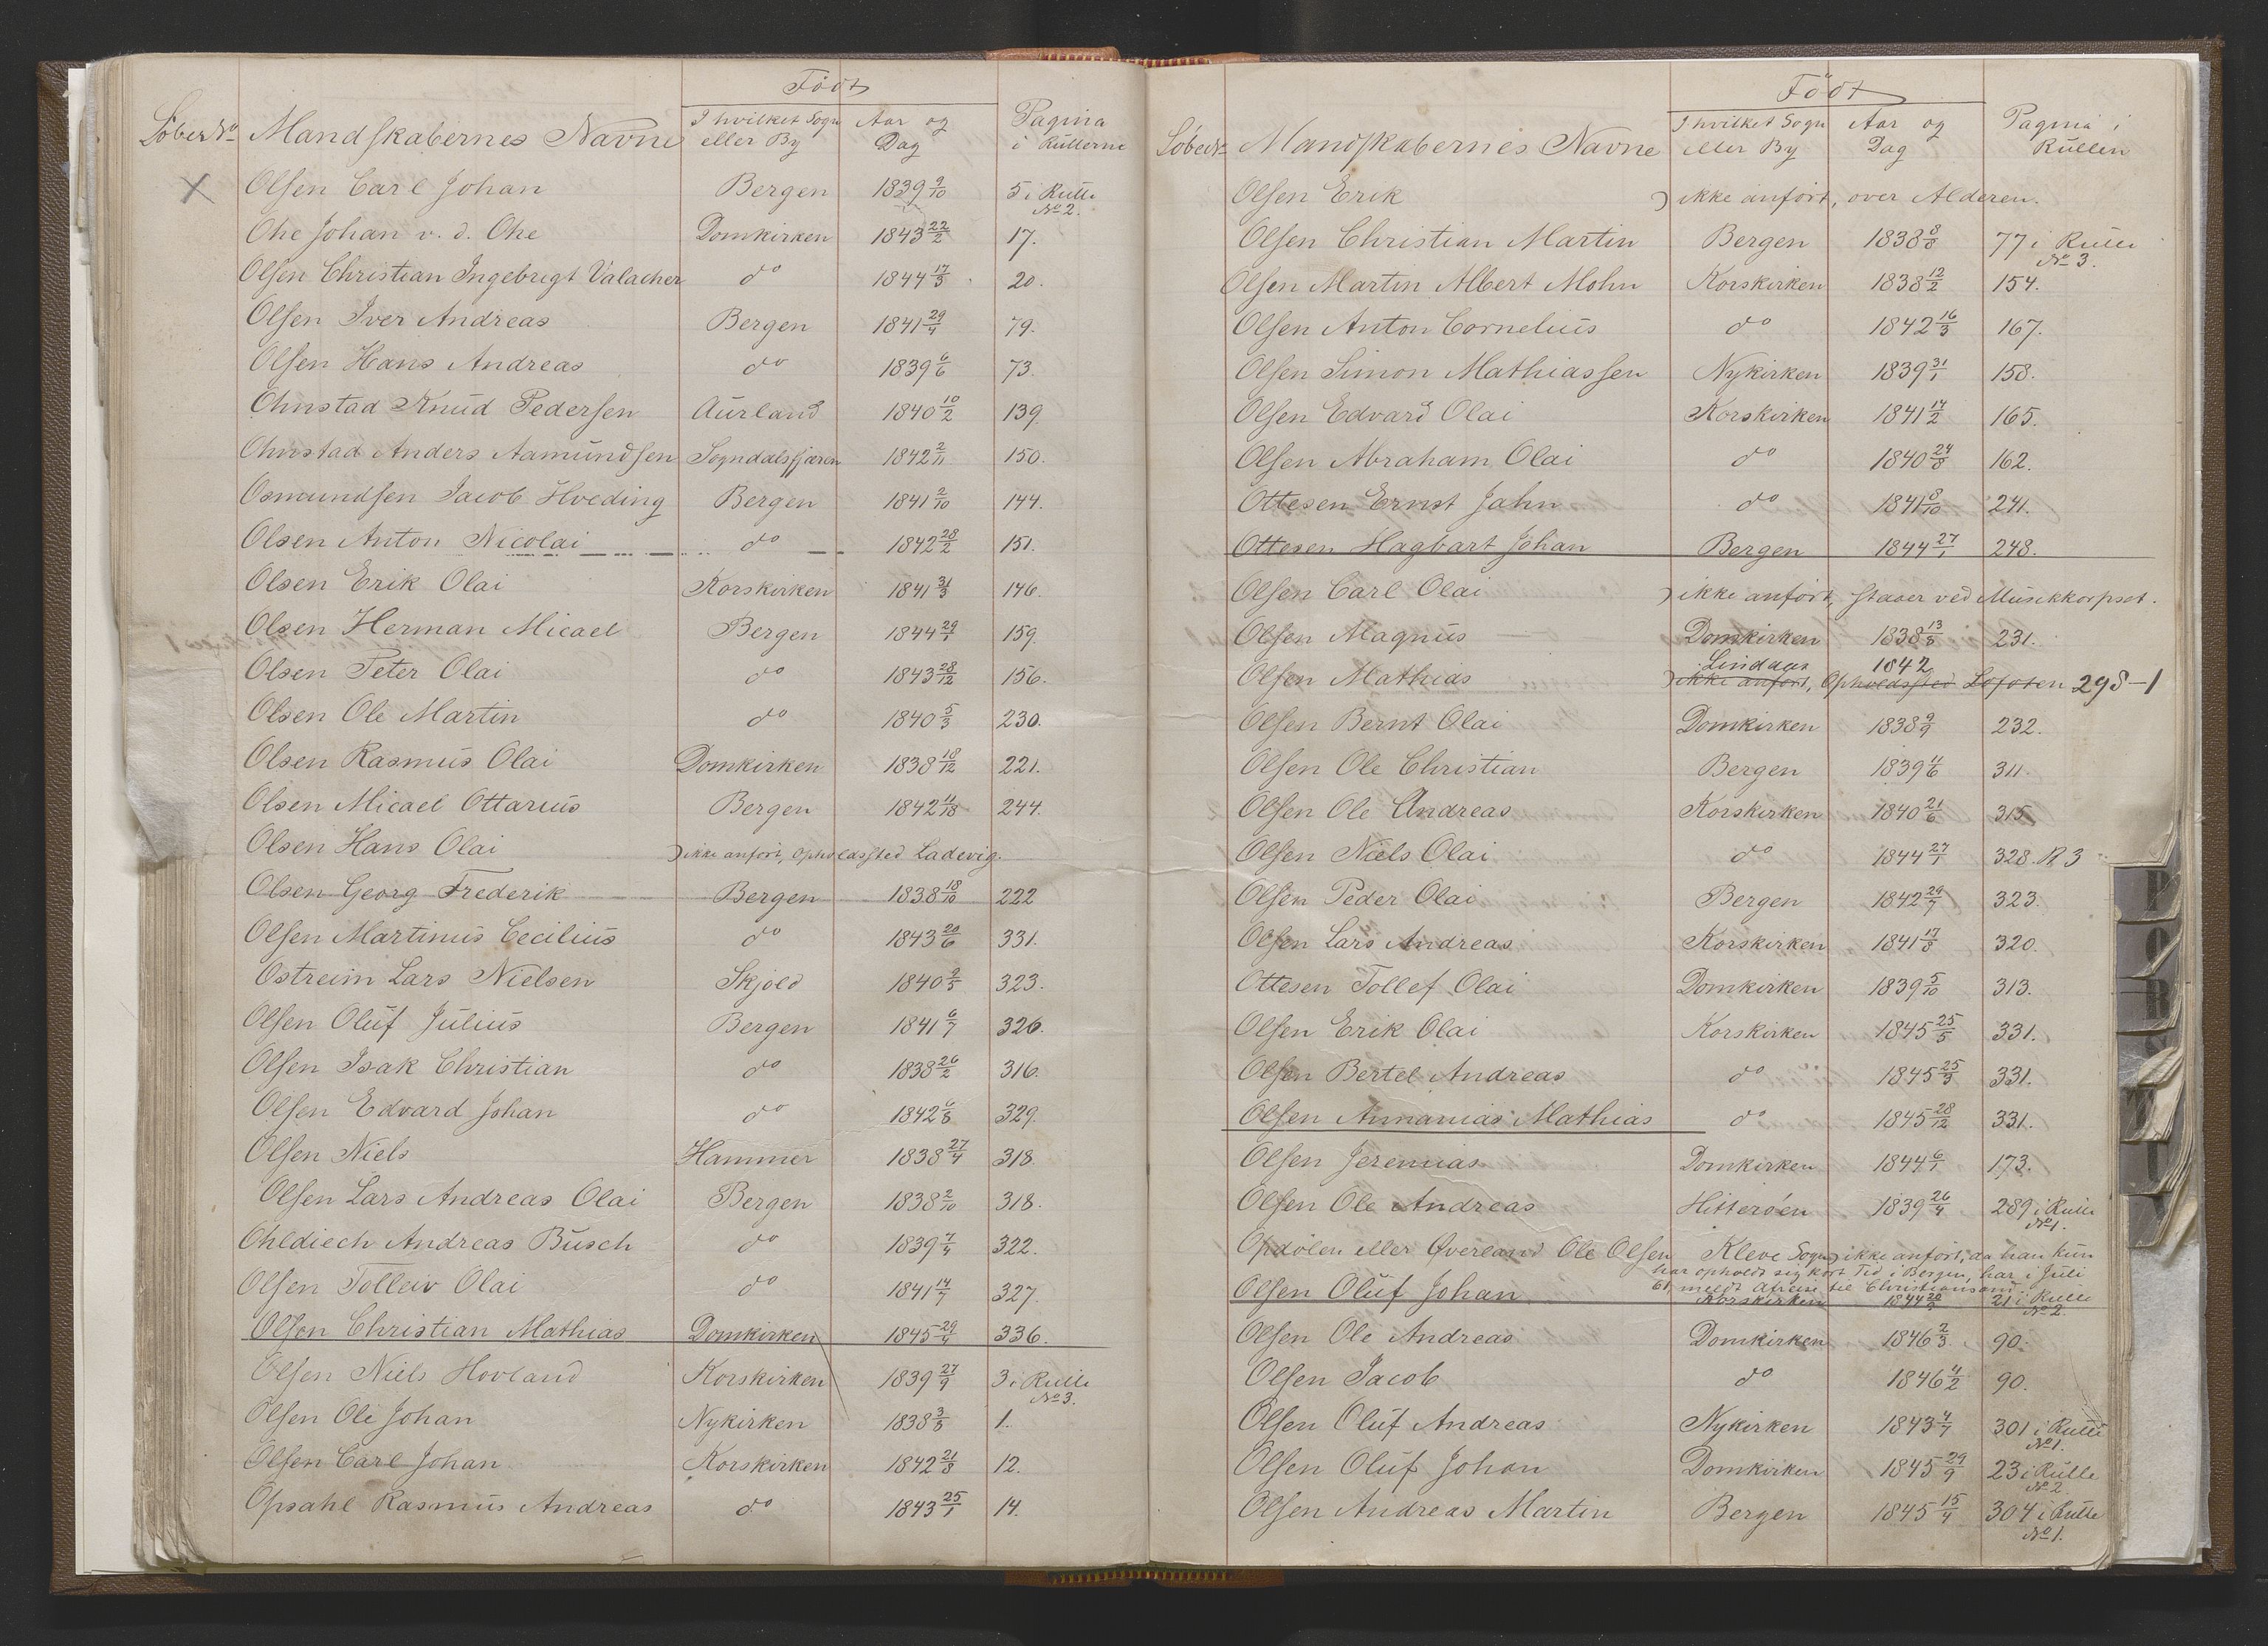 Født
Løbe No Mandskabernes Navne I hvilket Sogn eller By Aar og Dag Pagina i Rullerne
Olsen Carl Johan Bergen 1839 9/10 5 i Rulle No 2.
Ohe Johan v. d. Ohe Domkirken 1843 22/2 17.
Olsen Christian Ingebrigt Valacher do 1844 17/3 20.
Olsen Iver Andreas Bergen 1841 29/4 79.
Olsen Hans Andreas do 1839 6/6 73.
Ohnstad Knud Pedersen Aurland 1840 10/2 139.
Ohnstad Anders Aamundsen Sogndalsfjæren 1842 2/11 150.
Osmundsen Jacob Hveding Bergen 1841 2/10 144.
Olsen Anton Nicolai do 1842 28/2 151.
Olsen Erik Olai Korskirken 1841 31/3 146.
Olsen Herman Micael Bergen 1844 29/1 159.
Olsen Peter Olai do 1843 28/12 156.
Olsen Ole Martin do 1840 5/3 230.
Olsen Rasmus Olai Domkirken 1838 18/12 221.
Olsen Micael Ottarius Bergen 1842 244.
Olsen Hans Olai ikke anført, Opholdssted Ladevig.
Olsen Georg Frederik Bergen 1838 18/10 222
Olsen Martinus Cecilius do 1843 20/6 331.
Ostreim Lars Nielsen Skjold 1840 2/5 323.
Olsen Oluf Julius Bergen 1841 6/7 326.
Olsen Isak Christian do 1838 26/2 316.
Olsen Edvard Johan do 1842 6/8 329.
Olsen Niels Hammer 1838 27/4 318.
Olsen Lars Andreas Olai Bergen 1838 2/10 318.
Ohldiech Andreas Busch do 1839 7/4 322.
Olsen Tollew Olai do 1841 14/7 327.
Olsen Christian Mathias Domkirken 1845 29/4 336.
Olsen Niels Hovland Korskirken 1839 27/9 3 i Rulle No 3.
Olsen Ole Johan Nykirken 1838 3/8 1.
Olsen Carl Johan Korskirken 1842 21/8 12.
Opsahl Rasmus Andreas do 1843 25/1 14.
Født
Løbe No Mandskabernes Navne I hvilket Sogn eller By Aar og Dag Pagina i Rullen
Olsen Erik ikke anført, over Alderen.
Olsen Christian Martin Bergen 1838 8/8 77 i Rulle No 3.
Olsen Martin Albert Mohn Korskirken 1838 12/2 154.
Olsen Anton Cornelius do 1842 16/3 167.
Olsen Simon Mathiassen Nykirken 1839 31/1 158.
Olsen Edvard Olai Korskirken 1841 14/2 165.
Olsen Abraham Olai do 1840 24/8 162.
Ottesen Ernst Jahn do 1841 8/10 241.
Ottesen Hagbart Johan Bergen 1844 27/1 248.
Olsen Carl Olai ikke anført, staaer ved Musikkorpset.
Olsen Magnus Domkirken 1838 13/8 231.
Lindaas 1842
Olsen Mathias ikke anført, Opholdssted Lofoten 298-1
Olsen Bernt Olai Domkirken 1838 9/9 232.
Olsen Ole Christian Bergen 1839 4/6 311.
Olsen Ole Andreas Korskirken 1840 21/6 315
Olsen Niels Olai do 1844 27/1 328. R 3
Olsen Peder Olai Bergen 1842 29/7 323.
Olsen Lars Andreas Korskirken 1841 17/8 320.
Ottesen Tollef Olai Domkirken 1839 5/10 313.
Olsen Erik Olai Korskirken 1845 25/5 331.
Olsen Bertel Andreas do 1845 25/3 331.
Olsen Annanias Mathias do 1845 28/12 331.
Olsen Jeremias Domkirken 1844 6/1 173.
Olsen Ole Andreas Hitterøen 1839 26/4 289 i Rulle No 1.
Opdølen eller Øverland Ole Olsen Kleve Sogn, ikke anført, da han kun
har opholdt sig kort Tid i Bergen, har i Juli
61 meldt Afreise til Christiansand
Olsen Oluf Johan Korskirken 1844 21 i Rulle No 2.
Olsen Ole Andreas Domkirken 1846 2/3 90.
Olsen Jacob do 1846 4/2 90.
Olsen Oluf Andreas Nykirken 1843 4/7 301 i Rulle No 1.
Olsen Oluf Johan Domkirken 1845 29/9 23 i Rulle No 2
Olsen Andreas Martin Bergen 1845 15/4 304 i Rulle No 1.